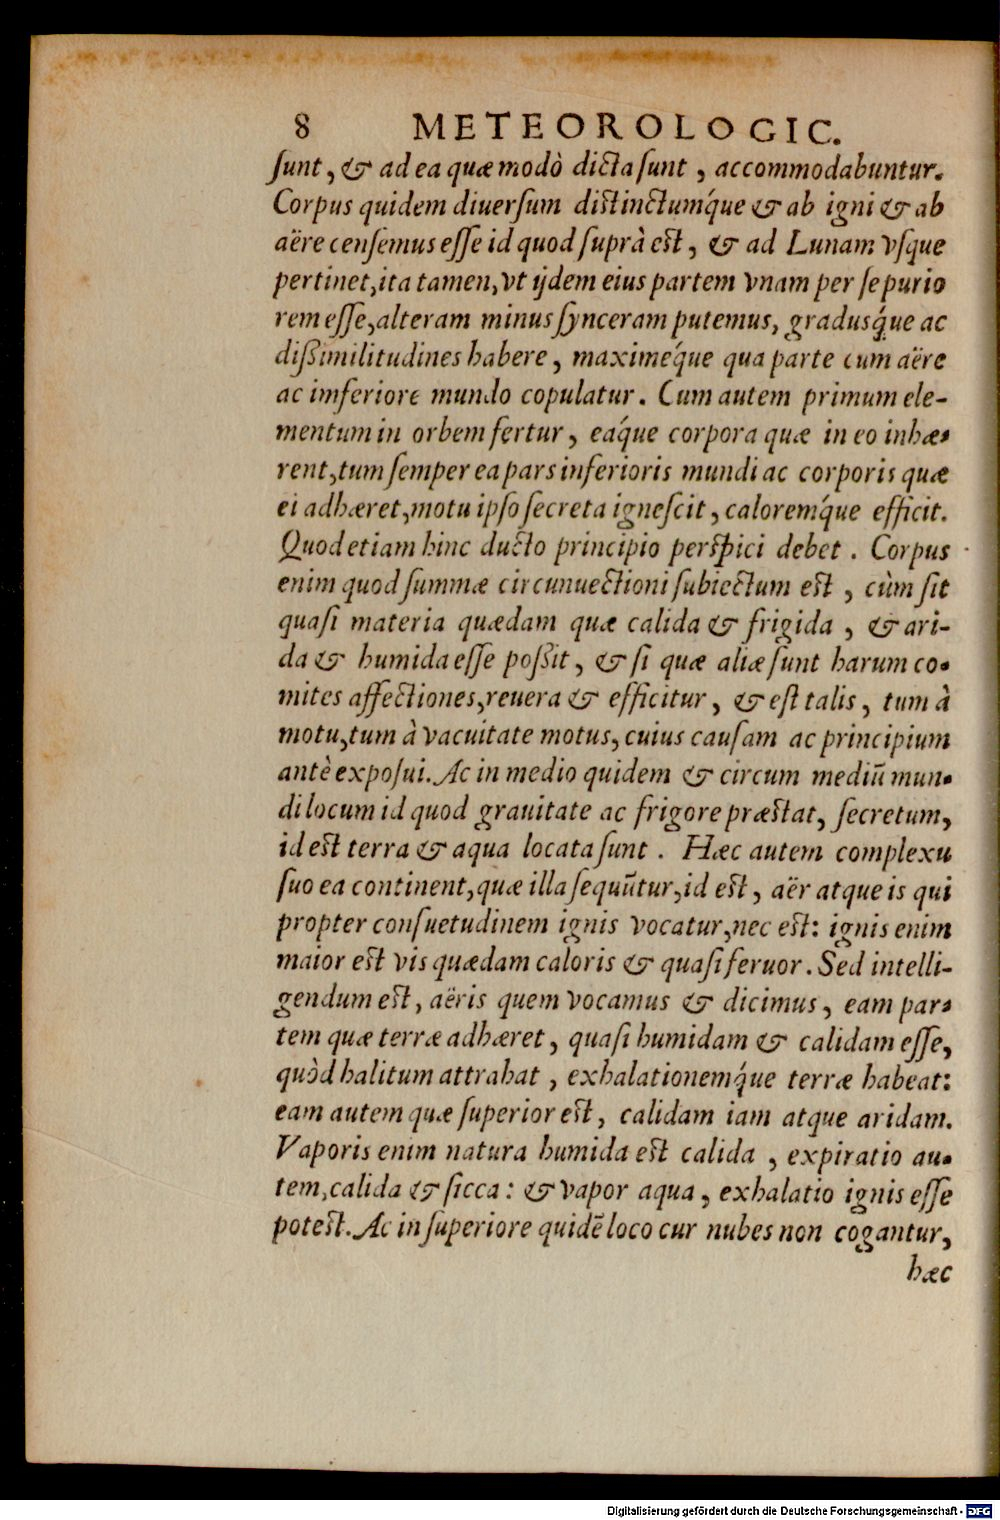 8 METEOROLOGIC.
ſunt, & ad ea quæ modò dicta ſunt, accommodabuntur.
Corpus quidem diuerſum diſtinctumq́ue & ab igni & ab
aëre cenſemus eſſe id quod ſuprà eſt, & ad Lunam vſque
pertinet, ita tamen, vt ijdem eius partem vnam per ſe purio
rem eſſe, alteram minus ſynceram putemus, gradusq́ue ac
diſsimilitudines habere, maximeq́ue qua parte cum aëre
ac imferiore mundo copulatur. Cum autem primum ele-
mentum in orbem fertur, eaq́ue corpora quæ in eo inhæ-
rent, tum ſemper ea pars inferioris mundi ac corporis quæ
ei adhæret, motu ipſo ſecreta igneſcit, caloremq́ue efficit.
Quod etiam hinc ducto principio perſpici debet. Corpus
enim quod ſummæ circunuectioni ſubiectum eſt, cùm ſit
quaſi materia quædam quæ calida & frigida, & ari-
da & humida eſſe poſsit, & ſi quæ aliæ ſunt harum co-
mites affectiones, reuera & efficitur, & eſt talis, tum à
motu, tum à vacuitate motus, cuius cauſam ac principium
antè expoſui. Ac in medio quidem & circum mediũ mun-
di locum id quod grauitate ac frigore præſtat, ſecretum,
id eſt terra & aqua locata ſunt. Hæc autem complexu
ſuo ea continent, quæ illa ſequũtur, id eſt, aër atque is qui
propter conſuetudinem ignis vocatur, nec eſt: ignis enim
maior eſt vis quædam caloris & quaſi feruor. Sed intelli-
gendum eſt, aëris quem vocamus & dicimus, eam par-
tem quæ terræ adhæret, quaſi humidam & calidam eſſe,
quòd halitum attrahat, exhalationemq́ue terræ habeat:
eam autem quæ ſuperior eſt, calidam iam atque aridam.
Vaporis enim natura humida eſt calida, expiratio au-
tem, calida & ſicca: & vapor aqua, exhalatio ignis eſſe
poteſt. Ac in ſuperiore quidẽ loco cur nubes non cogantur,
hæc
Digitalisierung gefördert durch die Deutsche Forschungsgemeinschaft - DFG